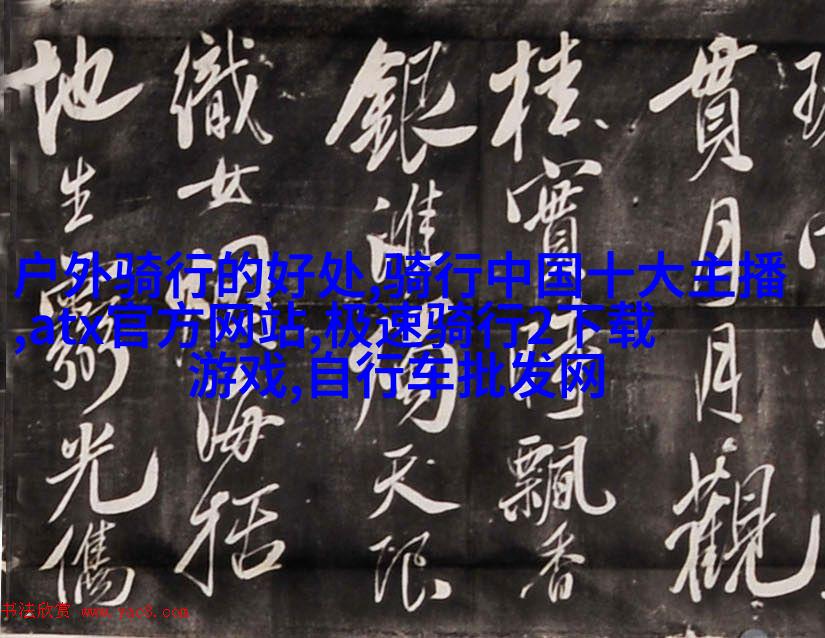 貫月月觀
桂實時飄香
銀淮天限
織女海括
地生光儁
户外骑行的好处,骑行中国十大主播
,atx官方网站,极速骑行2下载
游戏,自行车批发网
书法欣赏 www.yac8.com